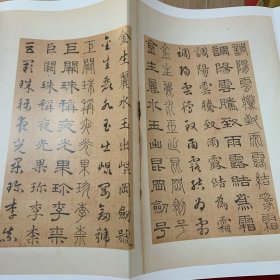 調陽雲騰致雨露結為霜
調陽雲騰致雨露結為霜
調陽雲騰致雨露結為霜
金生麗水玉出崑岡劍号
金生麗水玉出崑岡劍号
金生麗水玉出崐岡劍號
金生麗水玉出崐岡劍號
巨闕珠稱夜光果珍李柰
巨闕珠稱夜光果珍李柰
巨闕珠稱夜光果珍李柰